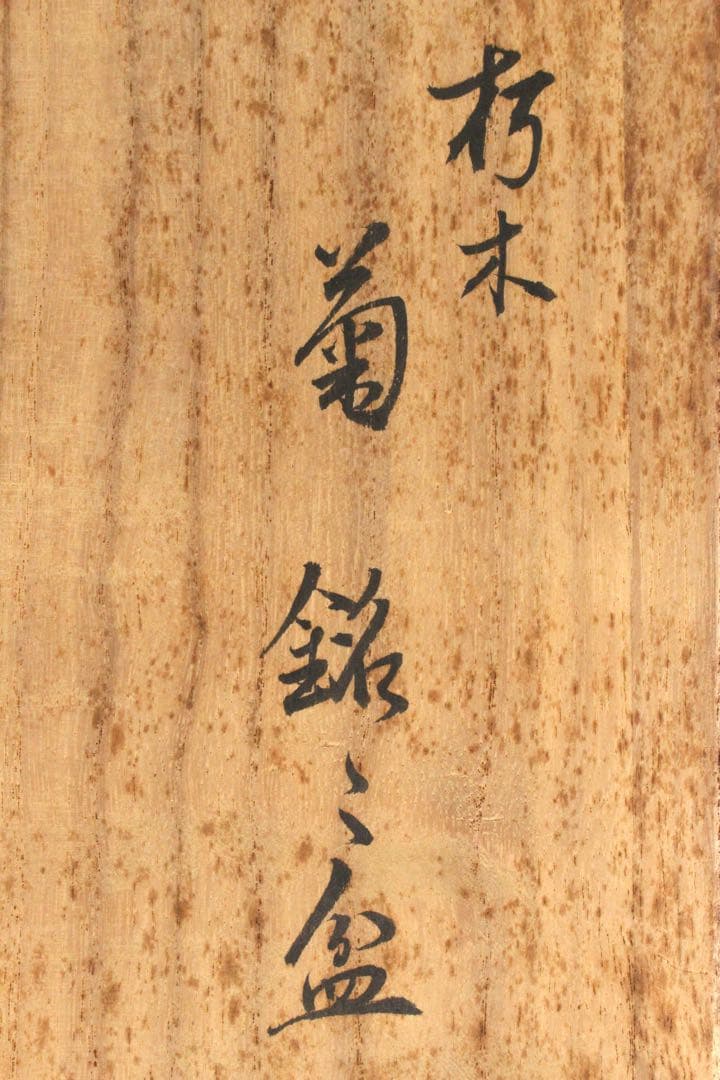 朽木
菊銘々盆